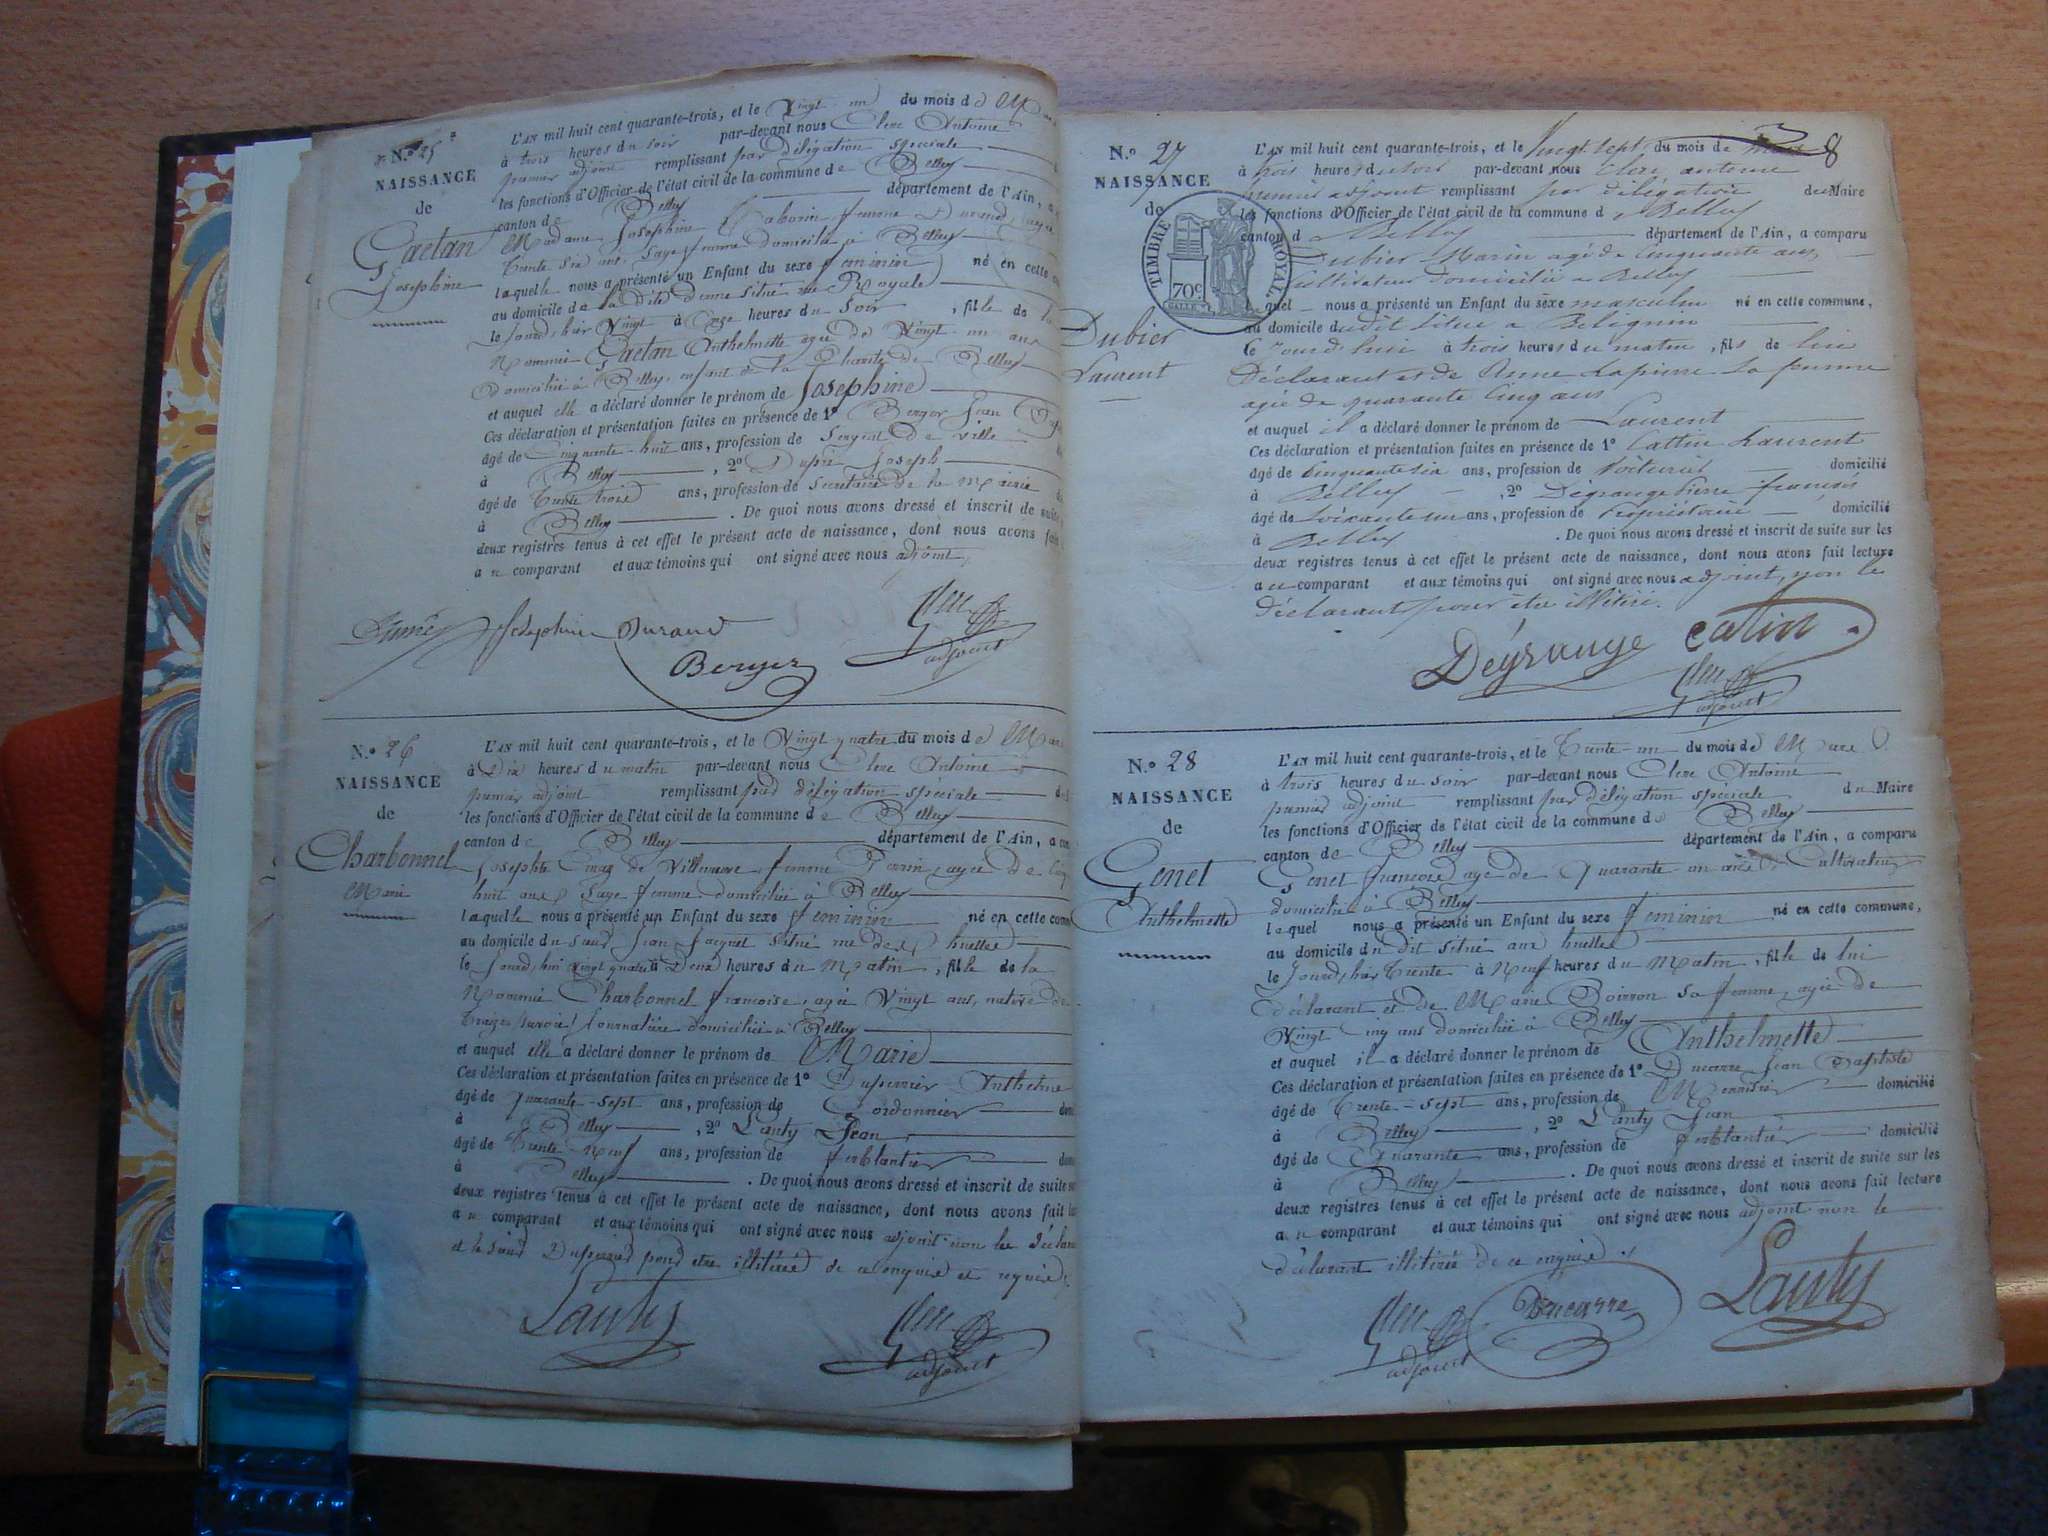 N.o 25
NAISSANCE
de
Gaetan
Josephine
L'AN mil huit cent quarante-trois, et le Vingt un du mois de
à trois heures du soir par-devant nous Clerc Antoine
premier adjoint remplissant par délégation spéciale
les fonctions d'Officier de l'état civil de la commune de Belley
canton de Belley département de l'Ain, a
Madame Josephine femme Durand, agée
trente six ans, Sage femme domiciliée à Belley
laquelle nous a présenté un Enfant du sexe feminin né en cette
au domicile de la dite dame situé rue Royale
le jourd'hier Vingt à Onze heures du Soir, fille de la
Nommée Gaetan Anthelmette agée de Vingt un ans
domiciliée à Belley, enfant de la Charité de Belley
et auquel elle a déclaré donner le prénom de Josephine
Ces déclaration et présentation faites en présence de 1° Berger Jean
âgé de Cinquante-huit ans, profession de Sergent de ville
à Belley, 2° Dupré Joseph
âgé de Trente trois ans, profession de Secretaire de la Mairie
à Belley. De quoi nous avons dressé et inscrit de suite
deux registres tenus à cet effet le présent acte de naissance, dont nous avons fait
a u comparant et aux témoins qui ont signé avec nous adjoint
Josephine Durand
Berger
Clerc
adjoint
N.o 26
NAISSANCE
de
Charbonnel
Marie
L'AN mil huit cent quarante-trois, et le Vingt quatre du mois de Mars
à Dix heures du matin par-devant nous Clerc Antoine
premier adjoint remplissant par délégation spéciale
les fonctions d'Officier de l'état civil de la commune de Belley
canton de Belley département de l'Ain, a
Josephte de Villeneuve femme agée de
huit ans Sage femme domiciliée à Belley
laquelle nous a présenté un Enfant du sexe feminin né en cette
au domicile du Sieur Jean Jacquet situé rue des huelles
le Jourd'hui vingt quatre à Deux heures du Matin, fille de la
Nommée Charbonnel françoise, agée Vingt ans, native de
domiciliée à Belley
et auquel elle a déclaré donner le prénom de Marie
Ces déclaration et présentation faites en présence de 1° Duperrier Anthelme
âgé de quarante-sept ans, profession de Cordonnier
à Belley, 2° Lanty Jean
âgé de Trente-neuf ans, profession de ferblantier
à Belley. De quoi nous avons dressé et inscrit de suite
deux registres tenus à cet effet le présent acte de naissance, dont nous avons fait
a u comparant et aux témoins qui ont signé avec nous adjoint non la
et le Sieur pour être illitérés de ce enquis et requis
Lanty
Clerc
adjoint
8
N.o 27
NAISSANCE
de
TIMBRE ROYAL
70c
Dubier
Laurent
L'AN mil huit cent quarante-trois, et le Vingt sept du mois de mars
à trois heures du soir par-devant nous Clerc antoine
premier adjoint remplissant par délégation du Maire
les fonctions d'Officier de l'état civil de la commune d Belley
canton d Belley département de l'Ain, a comparu
Dubier Marin agé de cinquante ans
Cultivateur domicilié a Belley
lequel nous a présenté un Enfant du sexe masculin né en cette commune,
au domicile dudit situé a Belignin
le jourd'hui à trois heures du matin, fils de lui
Déclarant et de lapierre sa femme
agée de quarante cinq ans
et auquel il a déclaré donner le prénom de Laurent
Ces déclaration et présentation faites en présence de 1° Cattin Laurent
âgé de cinquante six ans, profession de Voiturier domicilié
à Belley, 2° Dégrange Pierre françois
âgé de soixante un ans, profession de Propriétaire domicilié
à Belley. De quoi nous avons dressé et inscrit de suite sur les
deux registres tenus à cet effet le présent acte de naissance, dont nous avons fait lecture
a u comparant et aux témoins qui ont signé avec nous adjoint, non le
déclarant pour être illitéré.
Dégrange catin
Clerc
adjoint
N.o 28
NAISSANCE
de
Genet
Anthelmette
L'AN mil huit cent quarante-trois, et le Trente-un du mois de Mars
à trois heures du soir par-devant nous Clerc Antoine
premier adjoint remplissant par délégation spéciale du Maire
les fonctions d'Officier de l'état civil de la commune de Belley
canton de Belley département de l'Ain, a comparu
Genet françois agé de quarante un ans Cultivateur
domicilié à Belley
lequel nous a présenté un Enfant du sexe feminin né en cette commune,
au domicile du dit situé aux huelles
le Jourd'hier Trente à Neuf heures du Matin, fille de lui
déclarant et de Marie Boisson sa femme, agée de
Vingt Cinq ans domiciliée à Belley
et auquel il a déclaré donner le prénom de Anthelmette
Ces déclaration et présentation faites en présence de 1° Ducarre Jean Baptiste
âgé de Trente-sept ans, profession de Menuisier domicilié
à Belley, 2° Lanty Jean
âgé de Quarante ans, profession de ferblantier domicilié
à Belley. De quoi nous avons dressé et inscrit de suite sur les
deux registres tenus à cet effet le présent acte de naissance, dont nous avons fait lecture
a u comparant et aux témoins qui ont signé avec nous adjoint non le
déclarant illitéré de ce enquis
Clerc
adjoint
Ducarre
Lanty